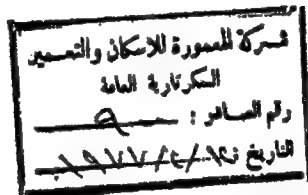 شركة المعمورة للاسكان والتعمير
السكرتارية العامة
رقم الصادر :
التاريخ :